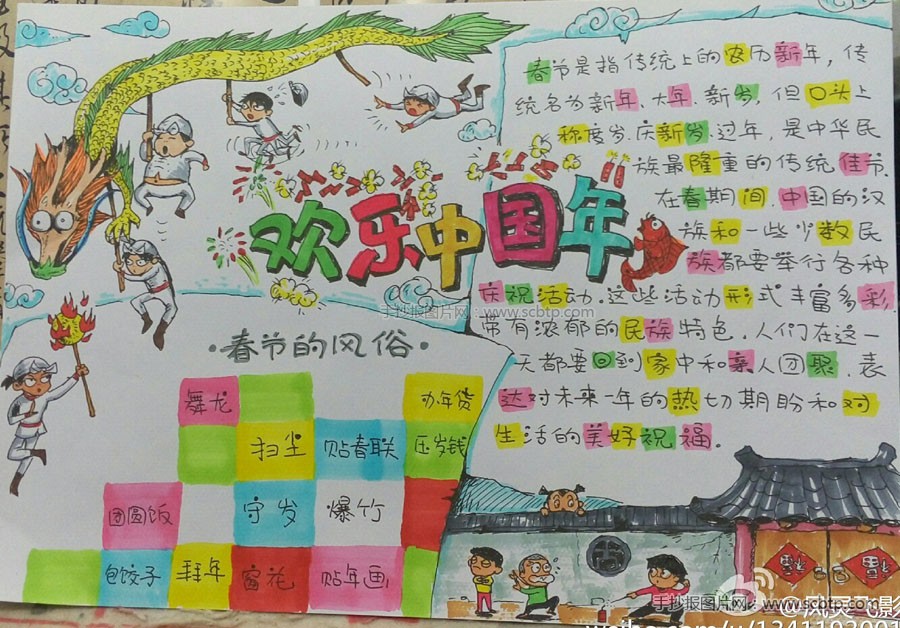 欢乐中国年
春节是指传统上的农历新年，传
统名为新年、大年、新岁，但口头上
称度岁.庆新岁.过年，是中华民
族最隆重的传统佳节.
在春期间.中国的汉
族和一些少数民
族都要举行各种
庆祝活动.这些活动形式丰富多彩.
带有浓郁的民族特色.人们在这一
天都要回到家中和亲人团聚.表
达对未来一年的热切期盼和对
生活的美好祝福。
手抄报图片网：www.scbtp.com
·春节的风俗·
舞龙 办年货
扫尘 贴春联 压岁钱
团圆饭 守发 爆竹
包饺子 拜年 窗花 贴年画
福 福
手抄报图片网：www.scbtp.com